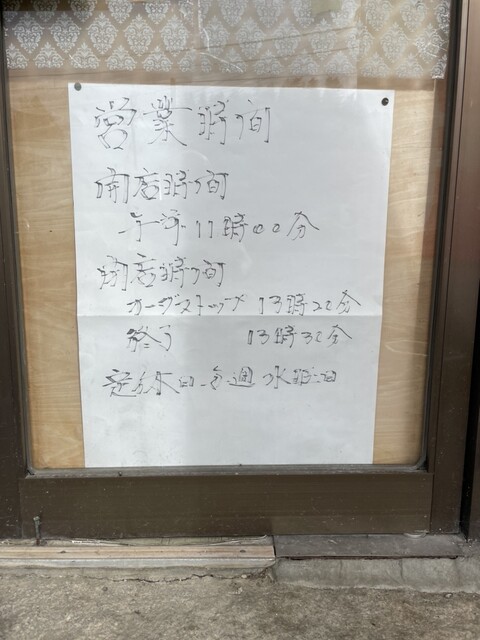 営業時間
開店時間
午前11時00分
閉店時間
オーダーストップ 13時20分
終了 13時30分
定休日 毎週 水曜日